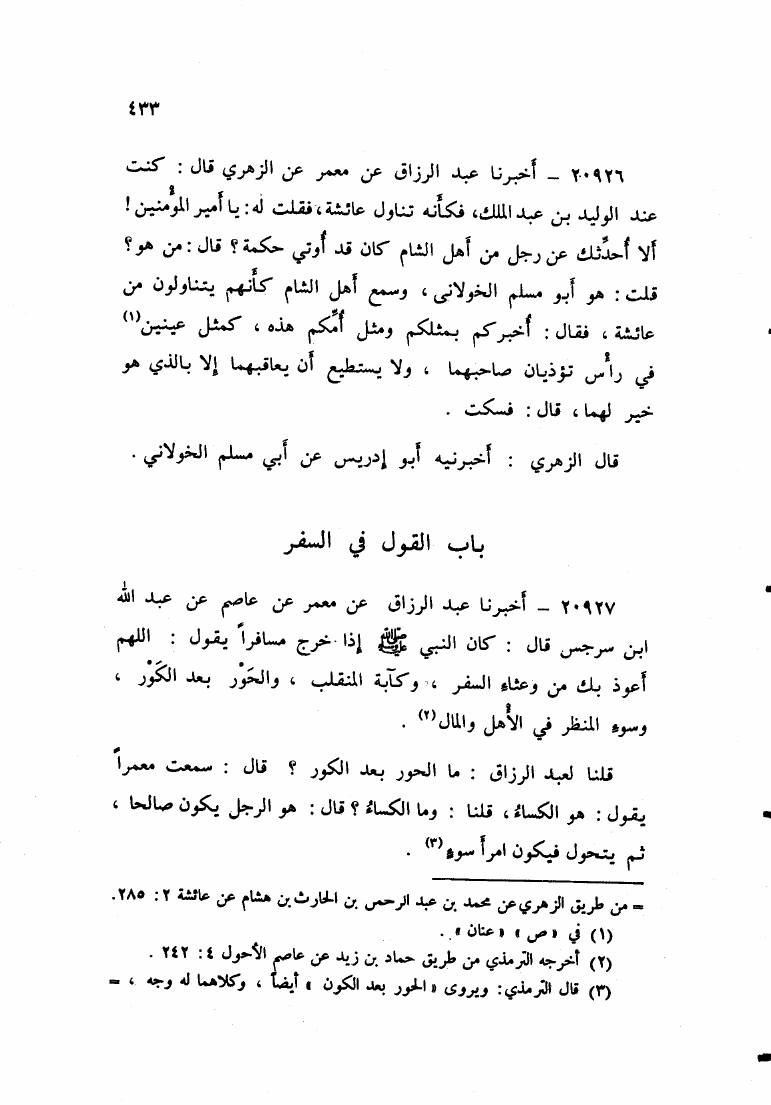 ٤٣٣
٢٠٩٢٦ – أخبرنا عبد الرزاق عن معمر عن الزهري قال : كنت
عند الوليد بن عبد الملك، فكأنه تناول عائشة، فقلت له: يا أمير المؤمنين !
ألا أُحدِّثك عن رجل من أهل الشام كان قد أُوتي حكمة ؟ قال : من هو ؟
قلت : هو أبو مسلم الخولانى ، وسمع أهل الشام كأنهم يتناولون من
عائشة ، فقال : أُخبركم بمثلكم ومثل أُمِّكم هذه ، كمثل عينين(١)
في رأس تؤذيان صاحبهما ، ولا يستطيع أن يعاقبهما إلا بالذي هو
خير لهما ، قال : فسكت .
قال الزهري : أخبرنيه أبو إدريس عن أبي مسلم الخولاني .
باب القول في السفر
٢٠٩٢٧ – أخبرنا عبد الرزاق عن معمر عن عاصم عن عبد الله
ابن سرجس قال : كان النبي ﷺ إذا خرج مسافراً يقول : اللهم
أعوذ بك من وعثاء السفر ، وكآبة المنقلب ، والحَوْر بعد الكَوْر ،
وسوء المنظر في الأهل والمال(٢) .
قلنا لعبد الرزاق : ما الحور بعد الكور ؟ قال : سمعت معمراً
يقول : هو الكساءُ، قلنا : وما الكساءُ ؟ قال : هو الرجل يكون صالحا ،
ثم يتحول فيكون امرأ سوءٍ(٣) .
= من طريق الزهري عن محمد بن عبد الرحمن بن الحارث بن هشام عن عائشة ٢ : ٢٨٥.
(١) في « ص » « عنان » .
(٢) أخرجه الترمذي من طريق حماد بن زيد عن عاصم الأحول ٤ : ٢٤٢ .
(٣) قال الترمذي: ويروى « الحور بعد الكون » أيضاً ، وكلاهما له وجه ، =